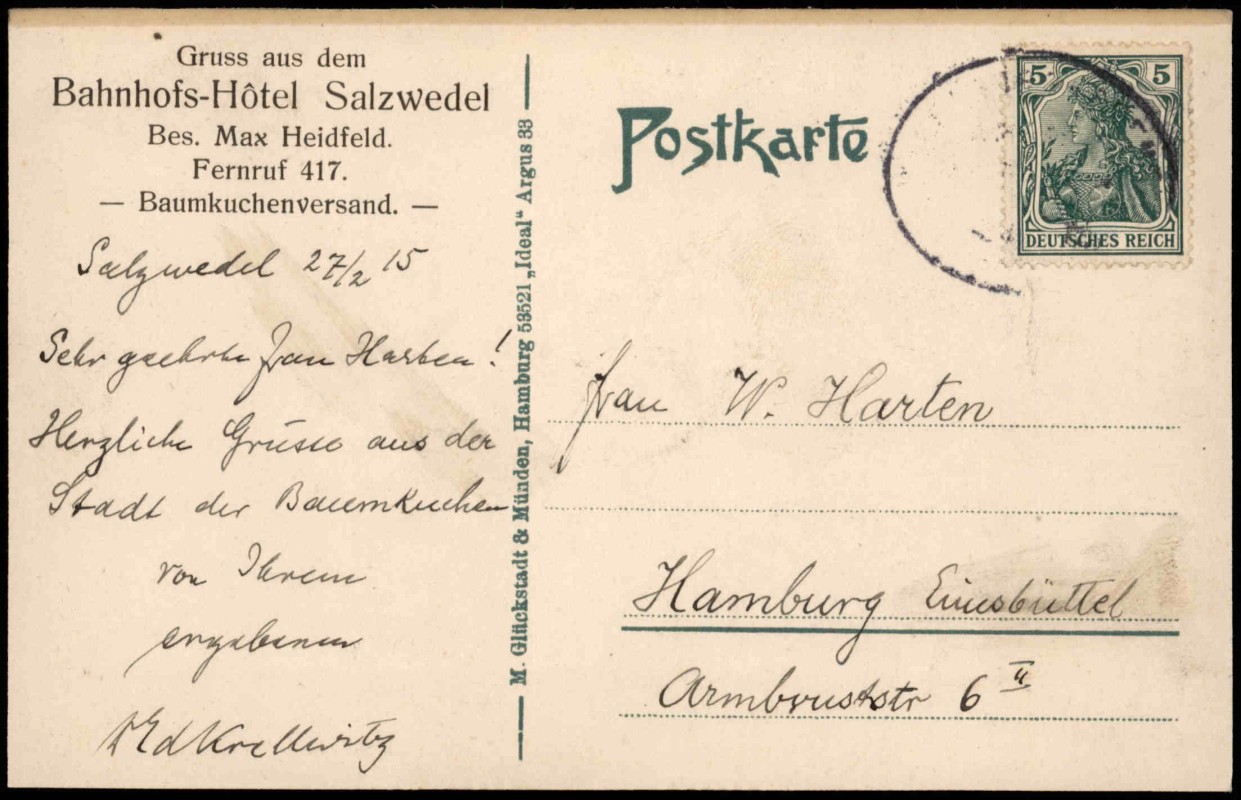 Gruss aus dem
Bahnhofs-Hôtel Salzwedel
Bes. Max Heidfeld.
Fernruf 417.
— Baumkuchenversand. —
Salzwedel 27/2 15
Sehr geehrte Frau Harten!
Herzliche Grüsse aus der
Stadt der Baumkuchen
von Ihrem
ergebenen
Ed Krellwitz
M. Glückstadt & Münden, Hamburg 53521 „Ideal“ Argus 33
Postkarte
5 5
DEUTSCHES REICH
Frau W. Harten
Hamburg Eimsbüttel
Armbruststr 6 II